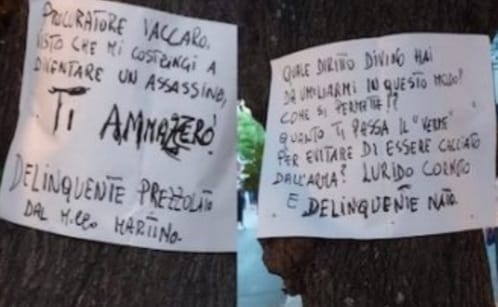 PROCURATORE VACCARO,
VISTO CHE MI COSTRINGI A
DIVENTARE UN ASSASSINO,
TI AMMAZZERÒ!
DELINQUENTE PREZZOLATO
DAL M.LLO MARTINO.
QUALE DIRITTO DIVINO HAI
DA UMILIARMI IN QUESTO MODO?
COME SI PERMETTE!?
QUANTO TI PASSA IL "VERME"
PER EVITARE DI ESSERE CACCIATO
DALL'ARMA? LURIDO CORNUTO
E DELINQUENTE NATO.